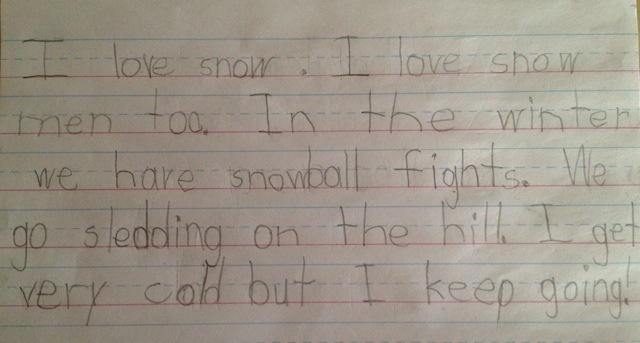 I love snow. I love snow
men too. In the winter
we have snowball fights. We
go sledding on the hill. I get
very cold but I keep going!